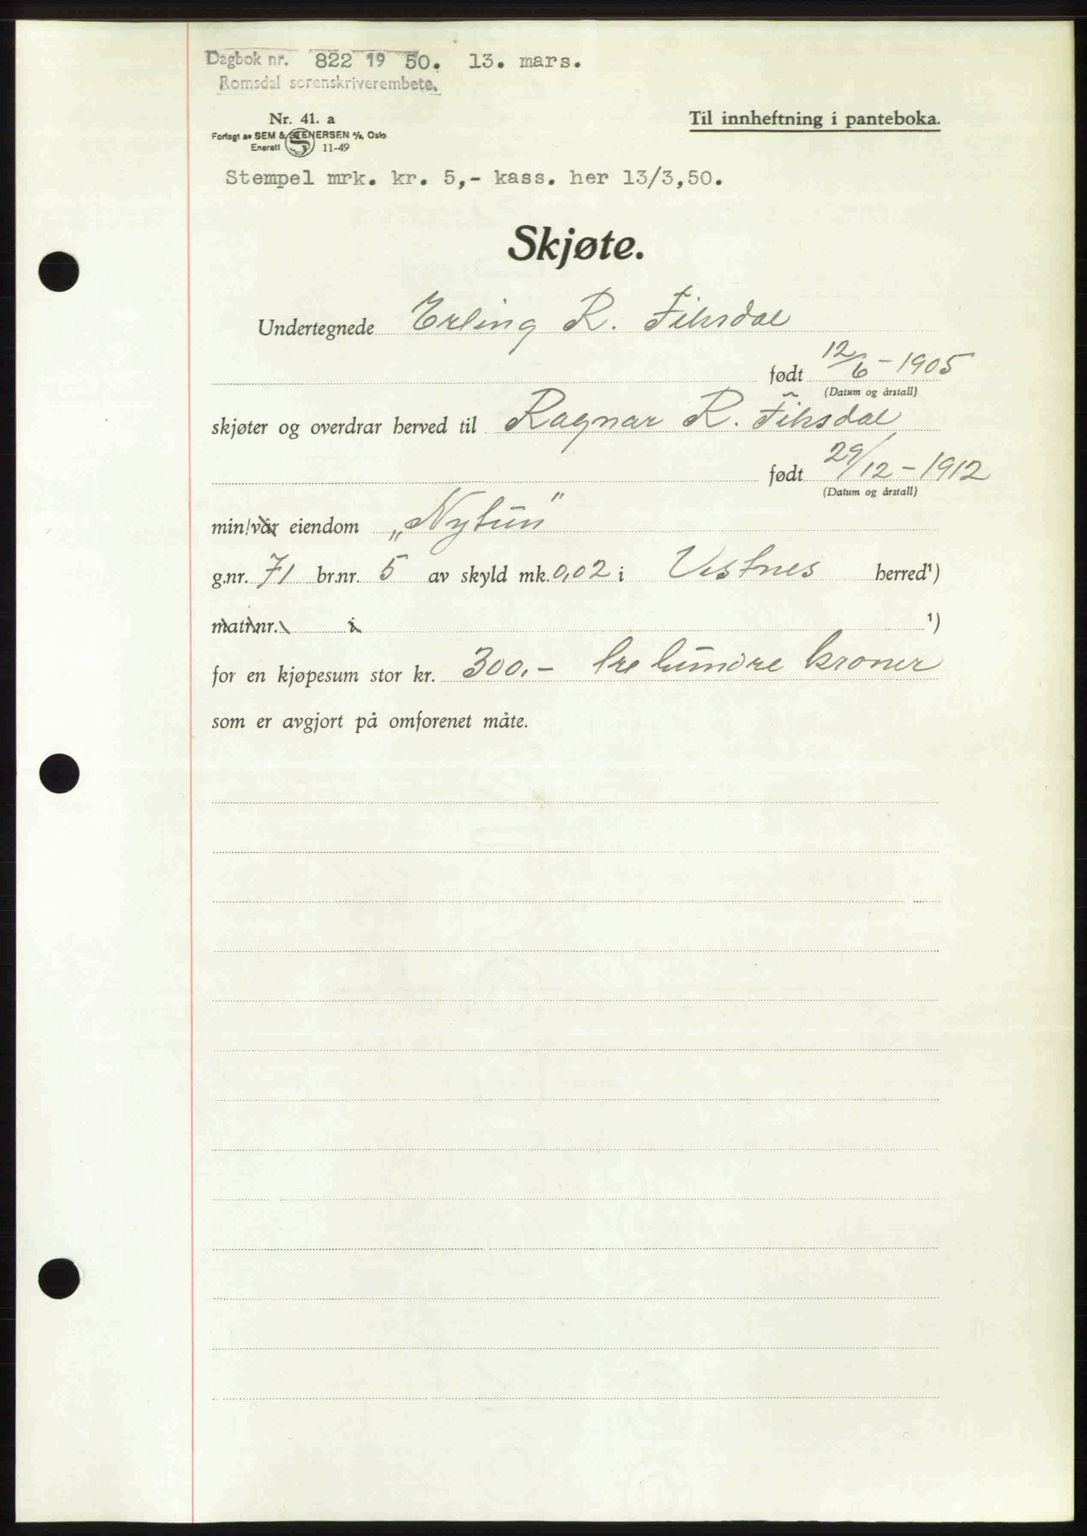 Dagbok nr. 822 19 50. 13. mars.
Romsdal sorenskriverembete.
Nr. 41. a
Forlagt av SEM & STENERSEN A/S, Oslo
Enerett 11-49
Til innheftning i panteboka.
Stempel mrk. kr. 5,- kass. her 13/3,50.
Skjøte.
Undertegnede Erling R. Fiksdal
født 12/6-1905
(Datum og årstall)
skjøter og overdrar herved til Ragnar R. Fiksdal
født 29/12-1912
(Datum og årstall)
min/vår eiendom „Nytun"
g.nr. 71 br.nr. 5 av skyld mk. 0,02 i Vestnes herred¹)
matr.nr. i ¹)
for en kjøpesum stor kr. 300.- tre hundre kroner
som er avgjort på omforenet måte.